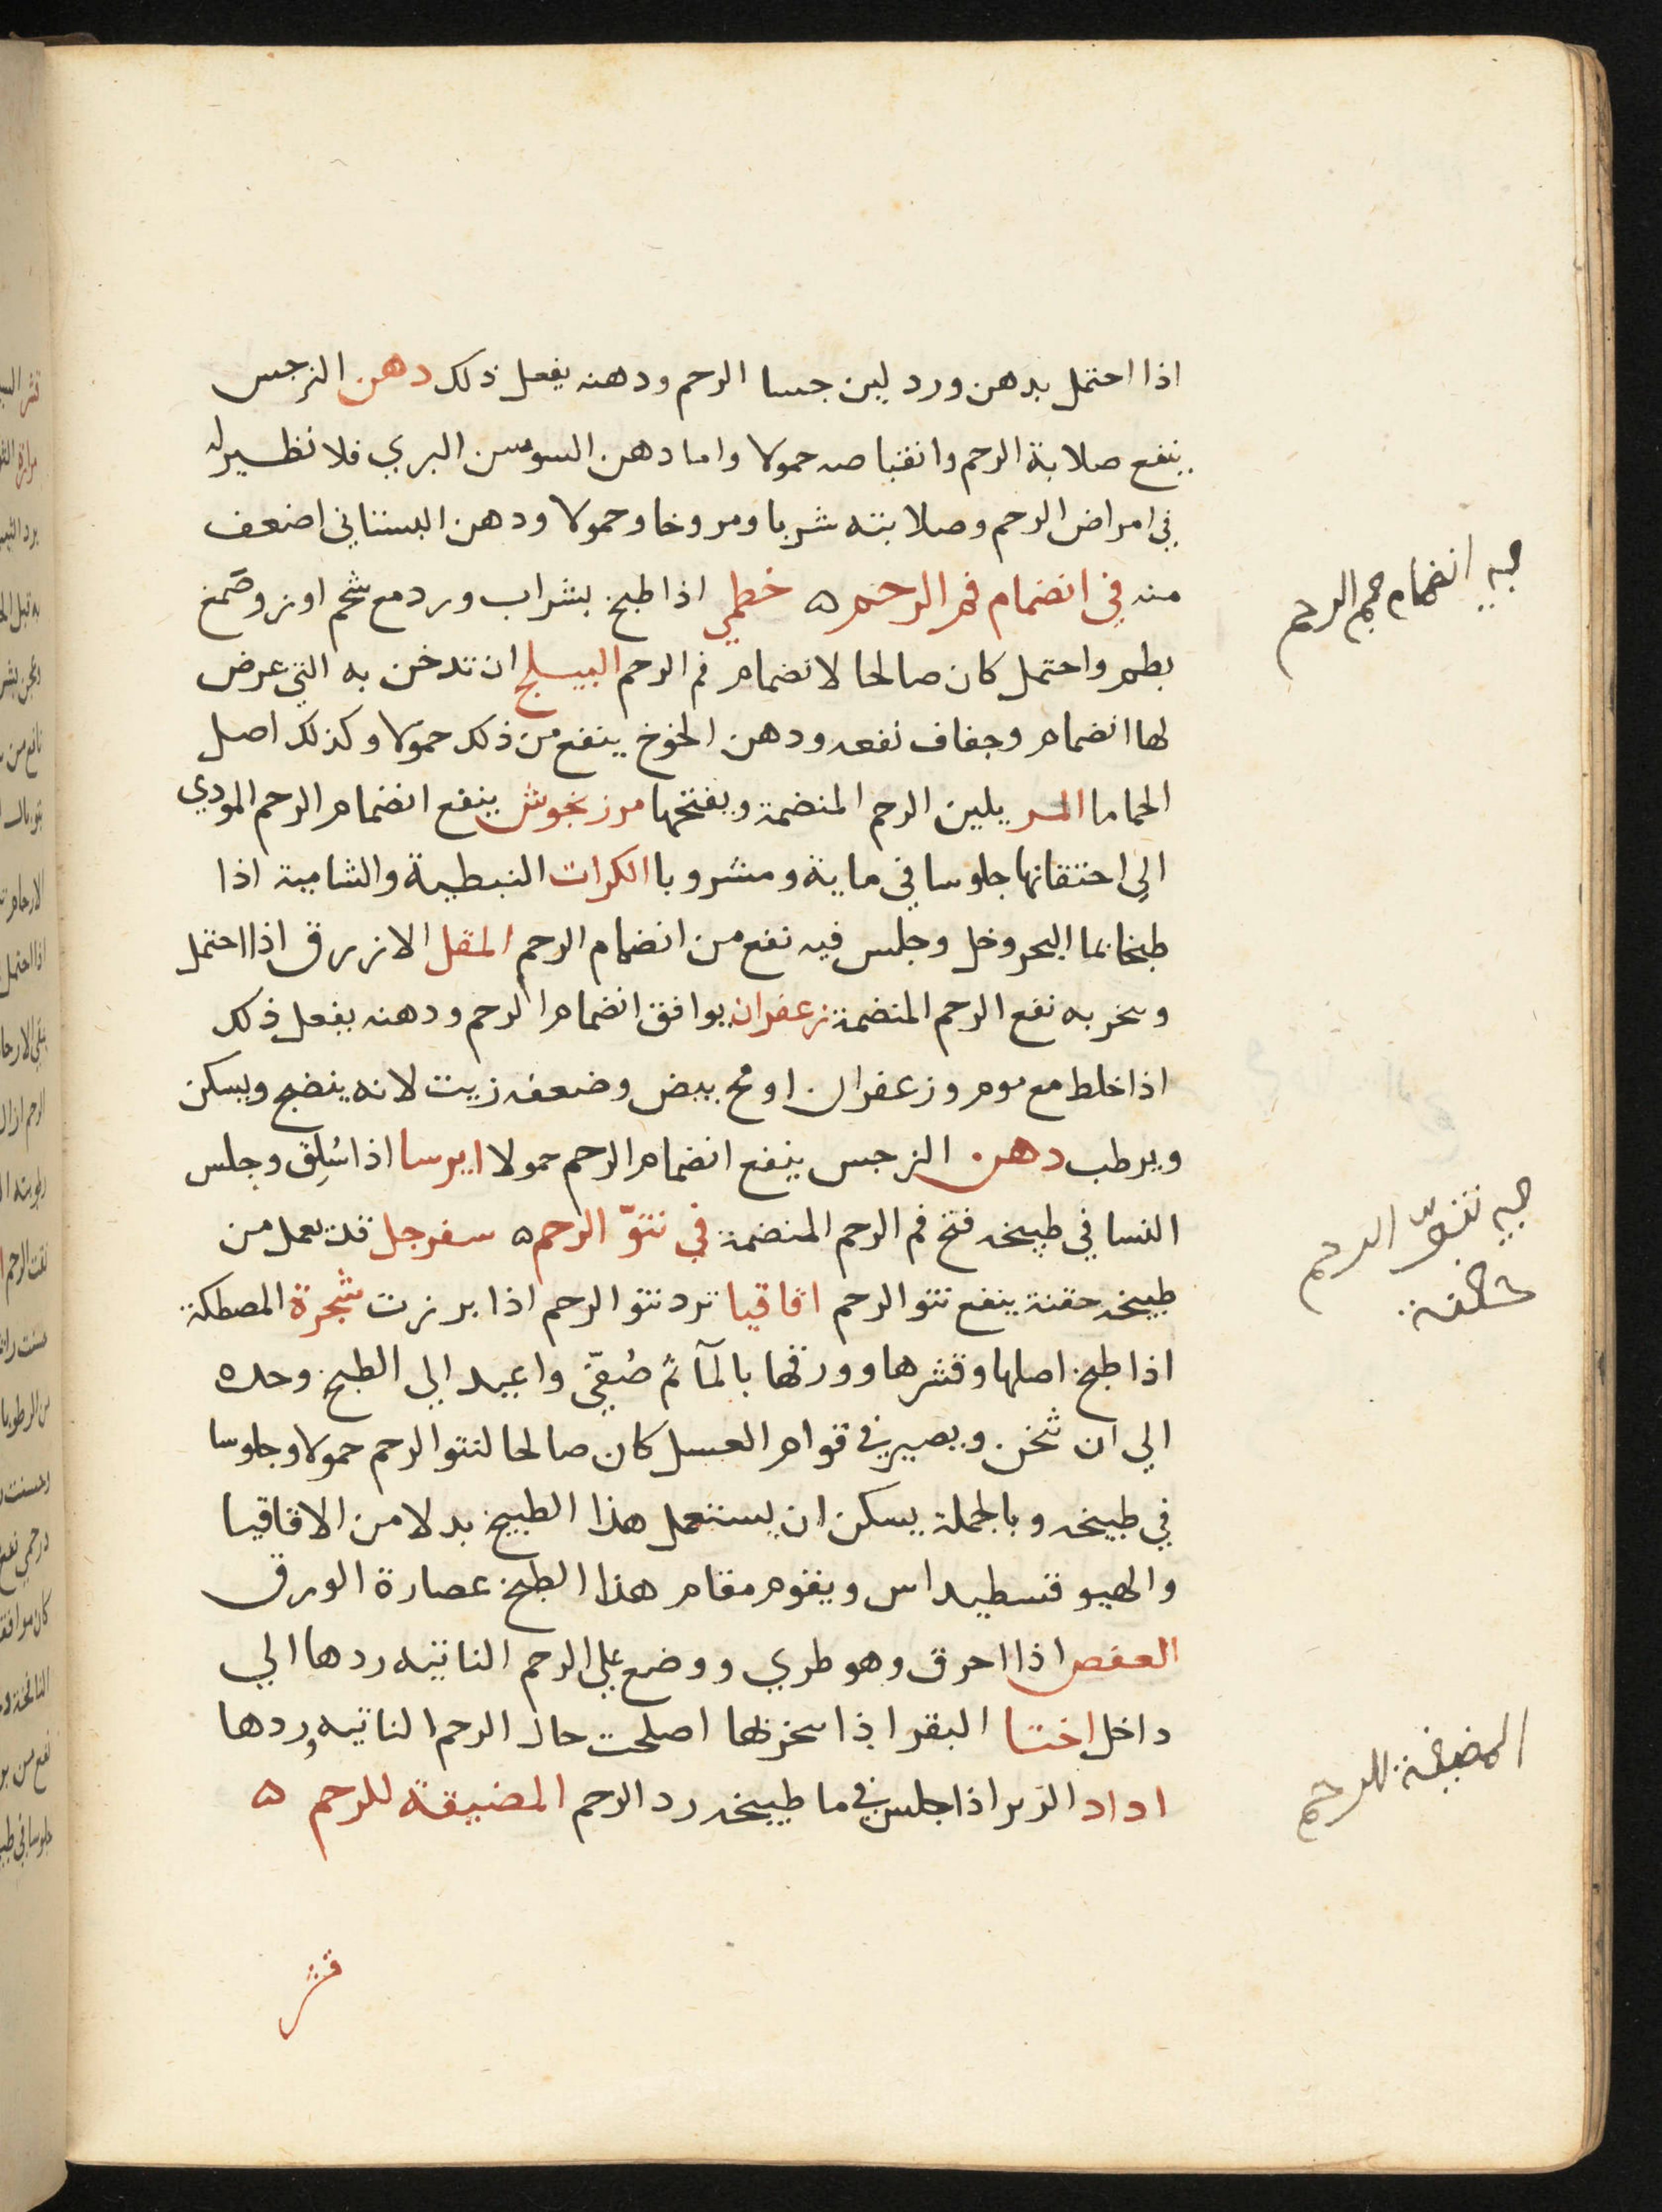 اذا احتمل بدهن ورد لين جسا الرحم ودهنه يفعل ذلك دهن النرجس
ينفع صلابة الرحم وانقباضه حمولا واما دهن السوسن البري فلا نظير له
في امراض الرحم وصلابته شربا ومروخا وحمولا ودهن البستاني اضعف
منه في انضمام فم الرحم ه خطمي اذا طبخ بشراب ورد مع شحم اوز وصمغ
بطم واحتمل كان صالحا لانضمام فم الرحم البيسلج ان تدخن به التي عرض
لها انضمام وجفاف نفعه ودهن الخوخ ينفع من ذلك حمولا وكذلك اصل
الحماما المر يلين الرحم المنضمة ويفتحها مرزنجوش ينفع انضمام الرحم المودي
الى اختنقانها جلوسا في مايه ومشروبا الكراث النبطية والشامية اذا
طبخا بما البحر وخل وجلس فيه نفع من انضمام الرحم المقل الازرق اذا احتمل
وبخر به نفع الرحم المنضمة زعفران يوافق انضمام الرحم ودهنه يفعل ذلك
اذا خلط مع موم وزعفران او مح بيض وضعفه زيت لانه ينضج ويسكن
ويرطب دهن النرجس ينفع انضمام الرحم حمولا ايرسا اذا سُلِق وجلس
النسا في طبيخه فتح فم الرحم المنضمة في نتوّ الرحم ه سفرجل قد يعمل من
طبيخه حقنة ينفع نتو الرحم اقاقيا ترد نتو الرحم اذا برزت شجرة المصطكة
اذا طبخ اصلها وقشرها وورقها بالمآ ثم صُفّي واعيد الي الطبخ وحده
الي ان ثخن ويصير في قوام العسل كان صالحا لنتو الرحم حمولا وجلوسا
في طبيخه وبالجملة يسكن ان يستعمل هذا الطبيخ بدلا من الاقاقيا
والهيوفقسطيداس ويقوم مقام هذا الطبخ عصارة الورق
العفص اذا احرق وهو طري ووضع علي الرحم الناتيه ردها الي
داخل اختا البقر اذا بخر بها اصلحت حال الرحم الناتيه وردها
اداد الزبر اذا جلس في ما طبيخه رد الرحم المضيقة للرحم ه
قشر
انضمام فم الرحم
نتوّ الرحم
المضيقة للرحم